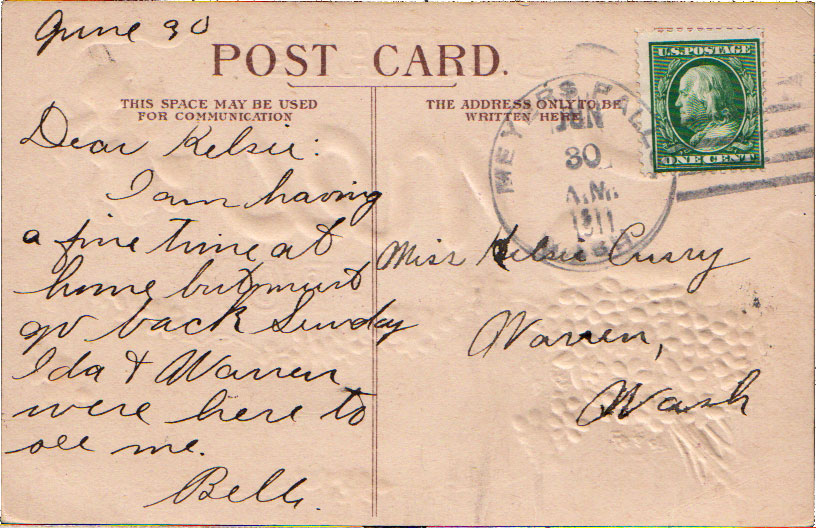 June 30
POST CARD.
THIS SPACE MAY BE USED
FOR COMMUNICATION
THE ADDRESS ONLY TO BE
WRITTEN HERE
U.S. POSTAGE
ONE CENT
MEYERS FALLS
JUN
30
A.M.
1911
WASH
Dear Kelsie:
I am having
a fine time at
home but must
go back Sunday
Ida & Warren
were here to
see me.
Belle.
Miss Kelsie
Warren,
Wash